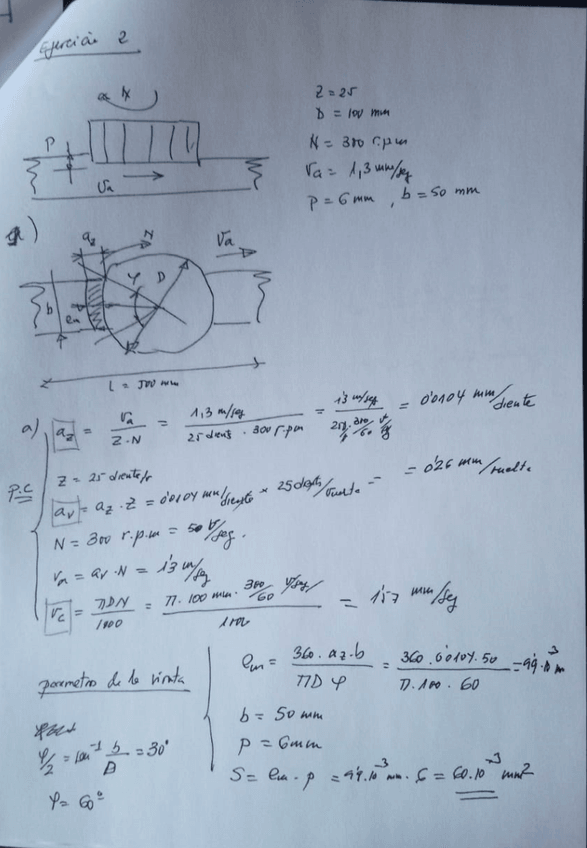 Ejercicio 2
Z = 25
D = 100 mm
N = 300 r.p.m
Va = 1,3 mm/seg
P = 6 mm, b = 50 mm
P
Va
a)
az
N
Va
φ
D
b
em
L = 500 mm
a) az = Va / Z·N = 1,3 m/seg / 25 dient · 300 r.p.m = 1'3 m/seg / 25 · 300/60 = 0'0104 mm/diente
P.C
Z = 25 diente/v
av = az · Z = 0'0104 mm/diente × 25 diente/vuelta = = 0'26 mm/vuelta
N = 300 r.p.m = 50 v/seg.
Va = av · N = 1'3 m/seg
Vc = πDN / 1000 = π · 100 mm · 300/60 v/seg / 1000 = 1'57 mm/seg
parametro de la viruta
em = 360 · az · b / πD φ = 360 · 0'0104 · 50 / π · 100 · 60 = 9'9·10⁻³ m
b = 50 mm
P = 6mm
S = em · p = 9'9·10⁻³ mm · 6 = 60·10⁻³ mm²
φ/2 = tan⁻¹ b/D = 30°
φ = 60°